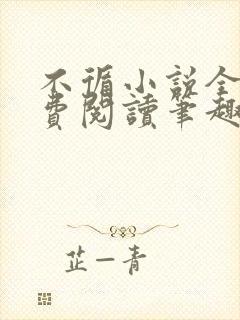 不循小说全
費閱讀筆趣
芷一青